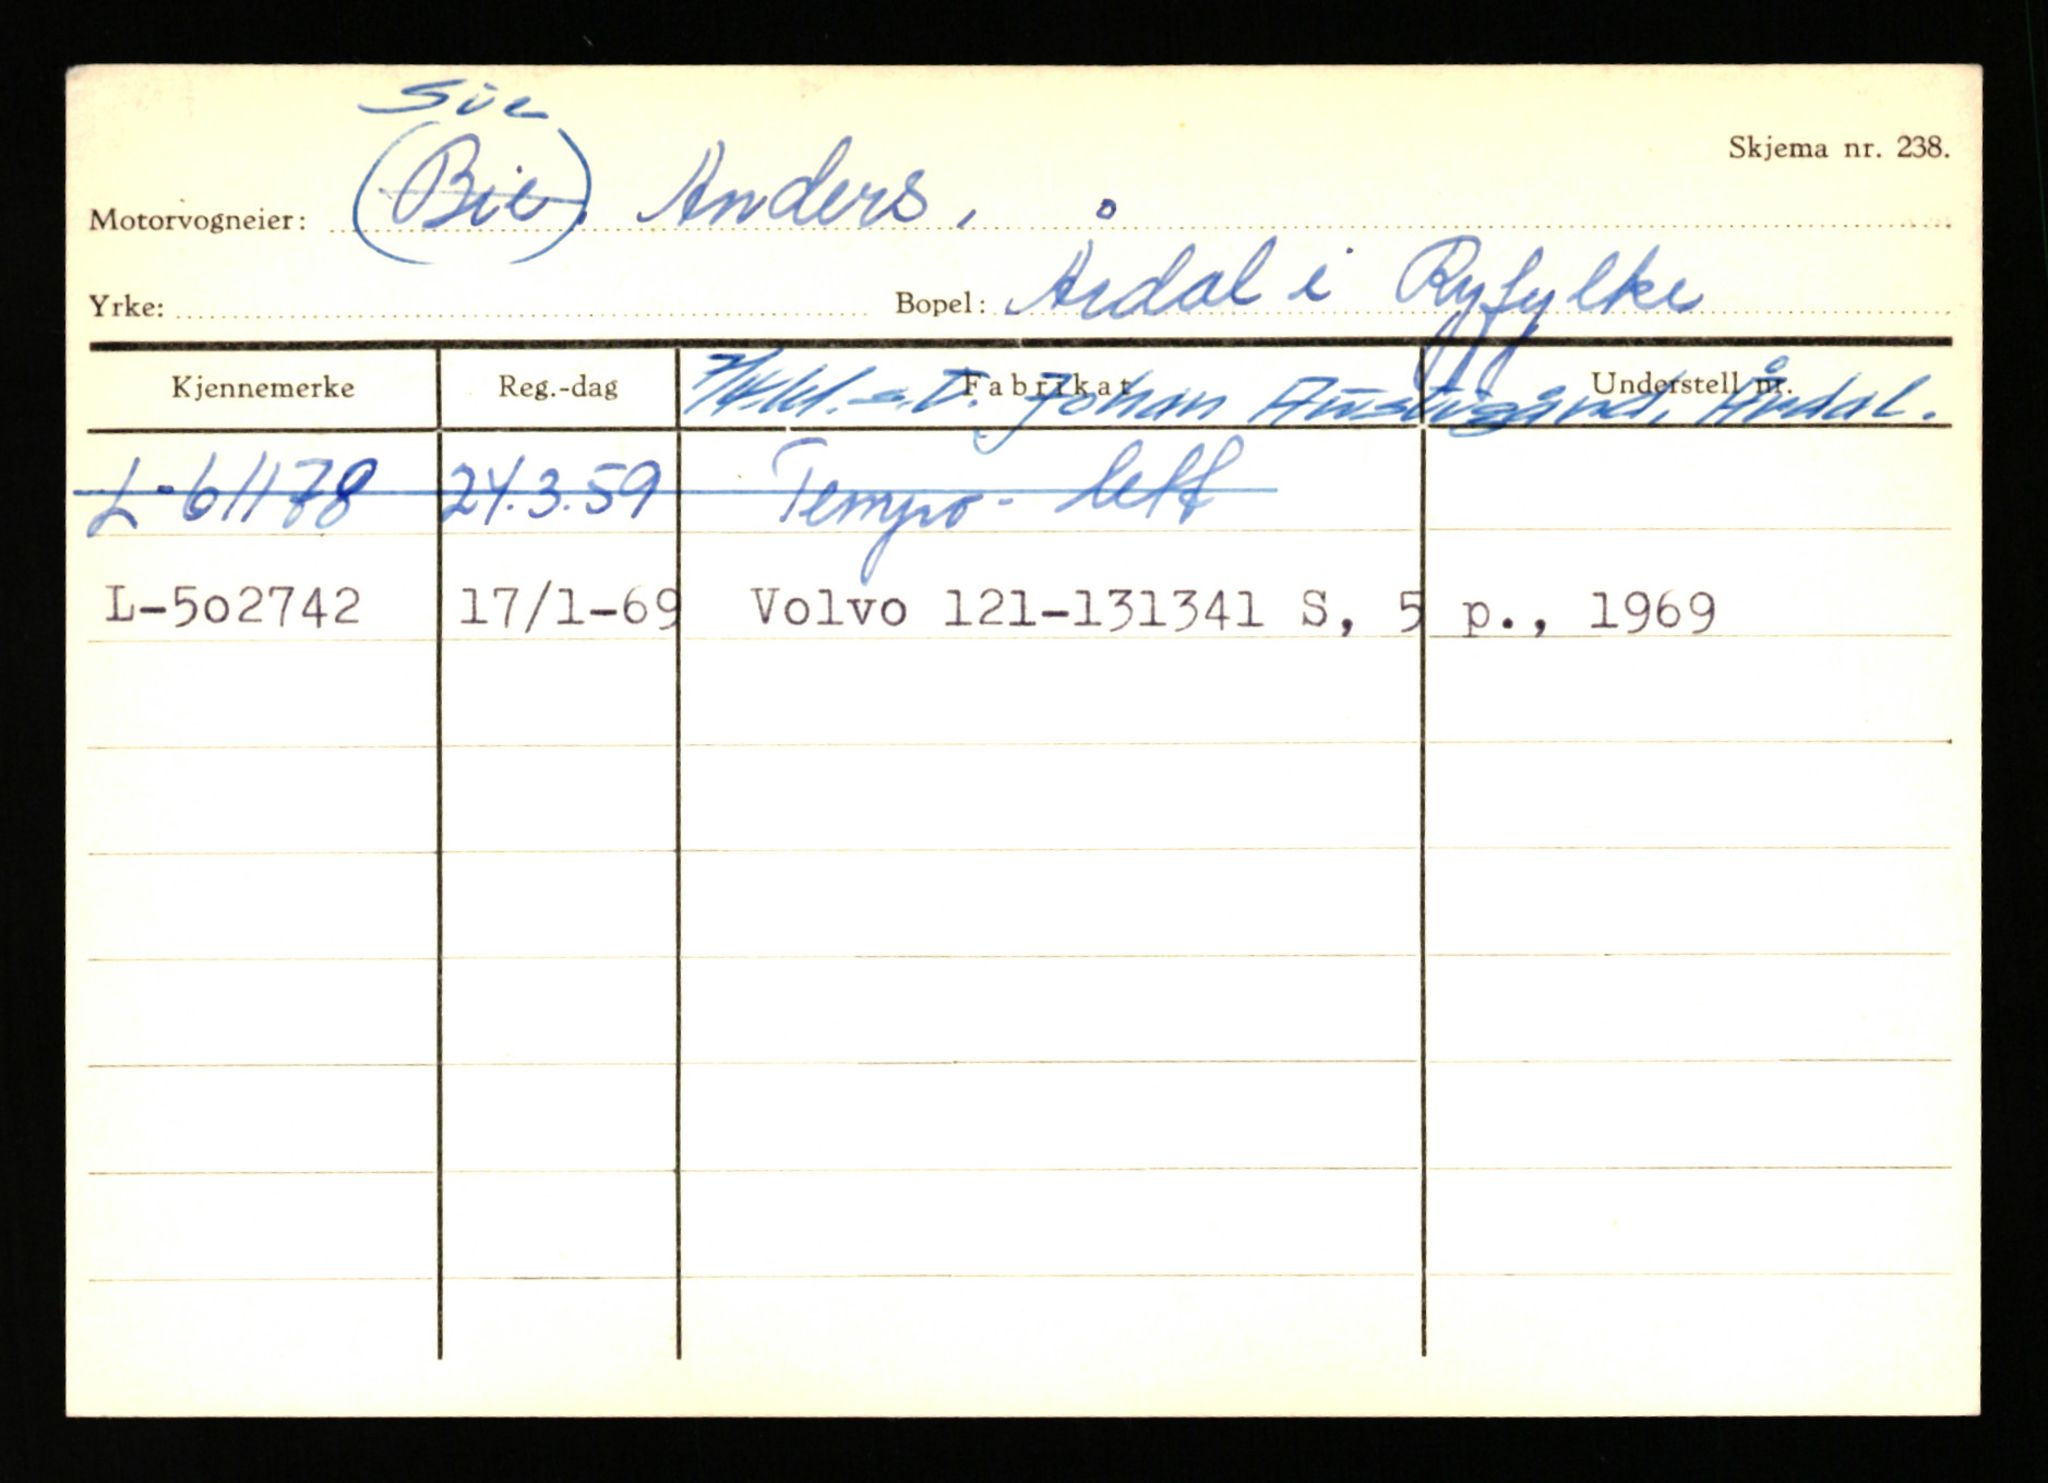 Sie
Skjema nr. 238.
Motorvogneier: (Bie), Anders,
Yrke: Bopel: Årdal i Ryfylke
Kjennemerke Reg.-dag Fabrikat Understell nr.
Johan Austigard, Årdal.
L-61178 24.3.59 Tempo- lett
L-502742 17/1-69 Volvo 121-131341 S, 5 p., 1969